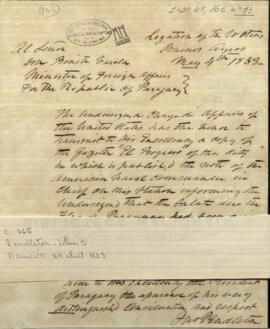 Legation of the U. States
Buenos Ayres
May 4th 1853
Al Señor
Don Benito Varela
Minister of Foreign Affairs
For the Republic of Paraguay
The Undersigned Chargé d'Affairs
of the United States has the honor to
transmit to his Excellency a copy of
the Gazette "El Progreso" of this City
in which is published the note of the
American Naval Commander in
Chief on this Station informing the
Undersigned that the Salute due the
Flag of Paraguay had been
C. 265
Pendleton, John S
Asunción 29 abril 1853
him to His Excellency the President
of Paraguay the assurance of his very
distinguished Consideration and respect
Jno Pendleton